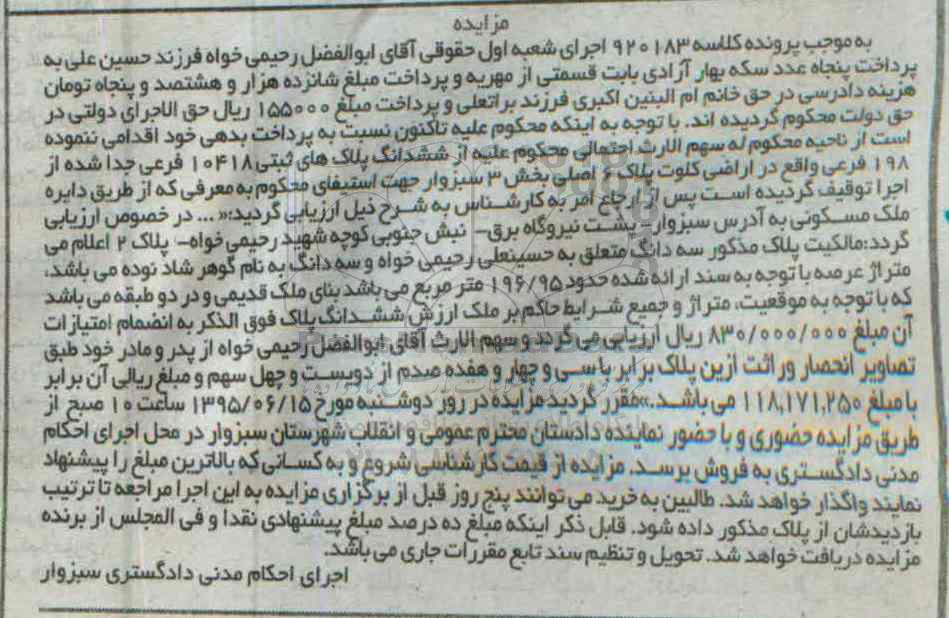 مزایده
به موجب پرونده کلاسه ۹۲۰۱۸۳ اجرای شعبه اول حقوقی آقای ابوالفضل رحیمی خواه فرزند حسین علی به
پرداخت پنجاه عدد سکه بهار آزادی بابت قسمتی از مهریه و پرداخت مبلغ شانزده هزار و هشتصد و پنجاه تومان
هزینه دادرسی در حق خانم ام البنین اکبری فرزند براتعلی و پرداخت مبلغ ۱۵۵۰۰۰ ریال حق الاجرای دولتی در
حق دولت محکوم گردیده اند. با توجه به اینکه محکوم علیه تاکنون نسبت به پرداخت بدهی خود اقدامی ننموده
است از ناحیه محکوم له سهم الارث احتمالی محکوم علیه از ششدانگ پلاک های ثبتی ۱۰۴۱۸ فرعی جدا شده از
۱۹۸ فرعی واقع در اراضی کلوت پلاک ۶ اصلی بخش ۳ سبزوار جهت استیفای محکوم به معرفی که از طریق دایره
اجرا توقیف گردیده است پس از ارجاع امر به کارشناس به شرح ذیل ارزیابی گردید:« ... در خصوص ارزیابی
ملک مسکونی به آدرس سبزوار- پشت نیروگاه برق- نبش جنوبی کوچه شهید رحیمی خواه- پلاک ۲ اعلام می
گردد:مالکیت پلاک مذکور سه دانگ متعلق به حسینعلی رحیمی خواه و سه دانگ به نام گوهر شاد نوده می باشد،
متراژ عرصه با توجه به سند ارائه شده حدود ۱۹۶/۹۵ متر مربع می باشد بنای ملک قدیمی و در دو طبقه می باشد
که با توجه به موقعیت، متراژ و جمیع شرایط حاکم بر ملک ارزش ششدانگ پلاک فوق الذکر به انضمام امتیازات
آن مبلغ ۸۳۰/۰۰۰/۰۰۰ ریال ارزیابی می گردد و سهم الارث آقای ابوالفضل رحیمی خواه از پدر و مادر خود طبق
تصاویر انحصار وراثت ازین پلاک برابر با سی و چهار و هفده صدم از دویست و چهل سهم و مبلغ ریالی آن برابر
با مبلغ ۱۱۸,۱۷۱,۲۵۰ می باشد.»مقرر گردید مزایده در روز دوشنبه مورخ ۱۳۹۵/۰۶/۱۵ ساعت ۱۰ صبح از
طریق مزایده حضوری و با حضور نماینده دادستان محترم عمومی و انقلاب شهرستان سبزوار در محل اجرای احکام
مدنی دادگستری به فروش برسد. مزایده از قیمت کارشناسی شروع و به کسانی که بالاترین مبلغ را پیشنهاد
نمایند واگذار خواهد شد. طالبین به خرید می توانند پنج روز قبل از برگزاری مزایده به این اجرا مراجعه تا ترتیب
بازدیدشان از پلاک مذکور داده شود. قابل ذکر اینکه مبلغ ده درصد مبلغ پیشنهادی نقدا و فی المجلس از برنده
مزایده دریافت خواهد شد. تحویل و تنظیم سند تابع مقررات جاری می باشد.
اجرای احکام مدنی دادگستری سبزوار